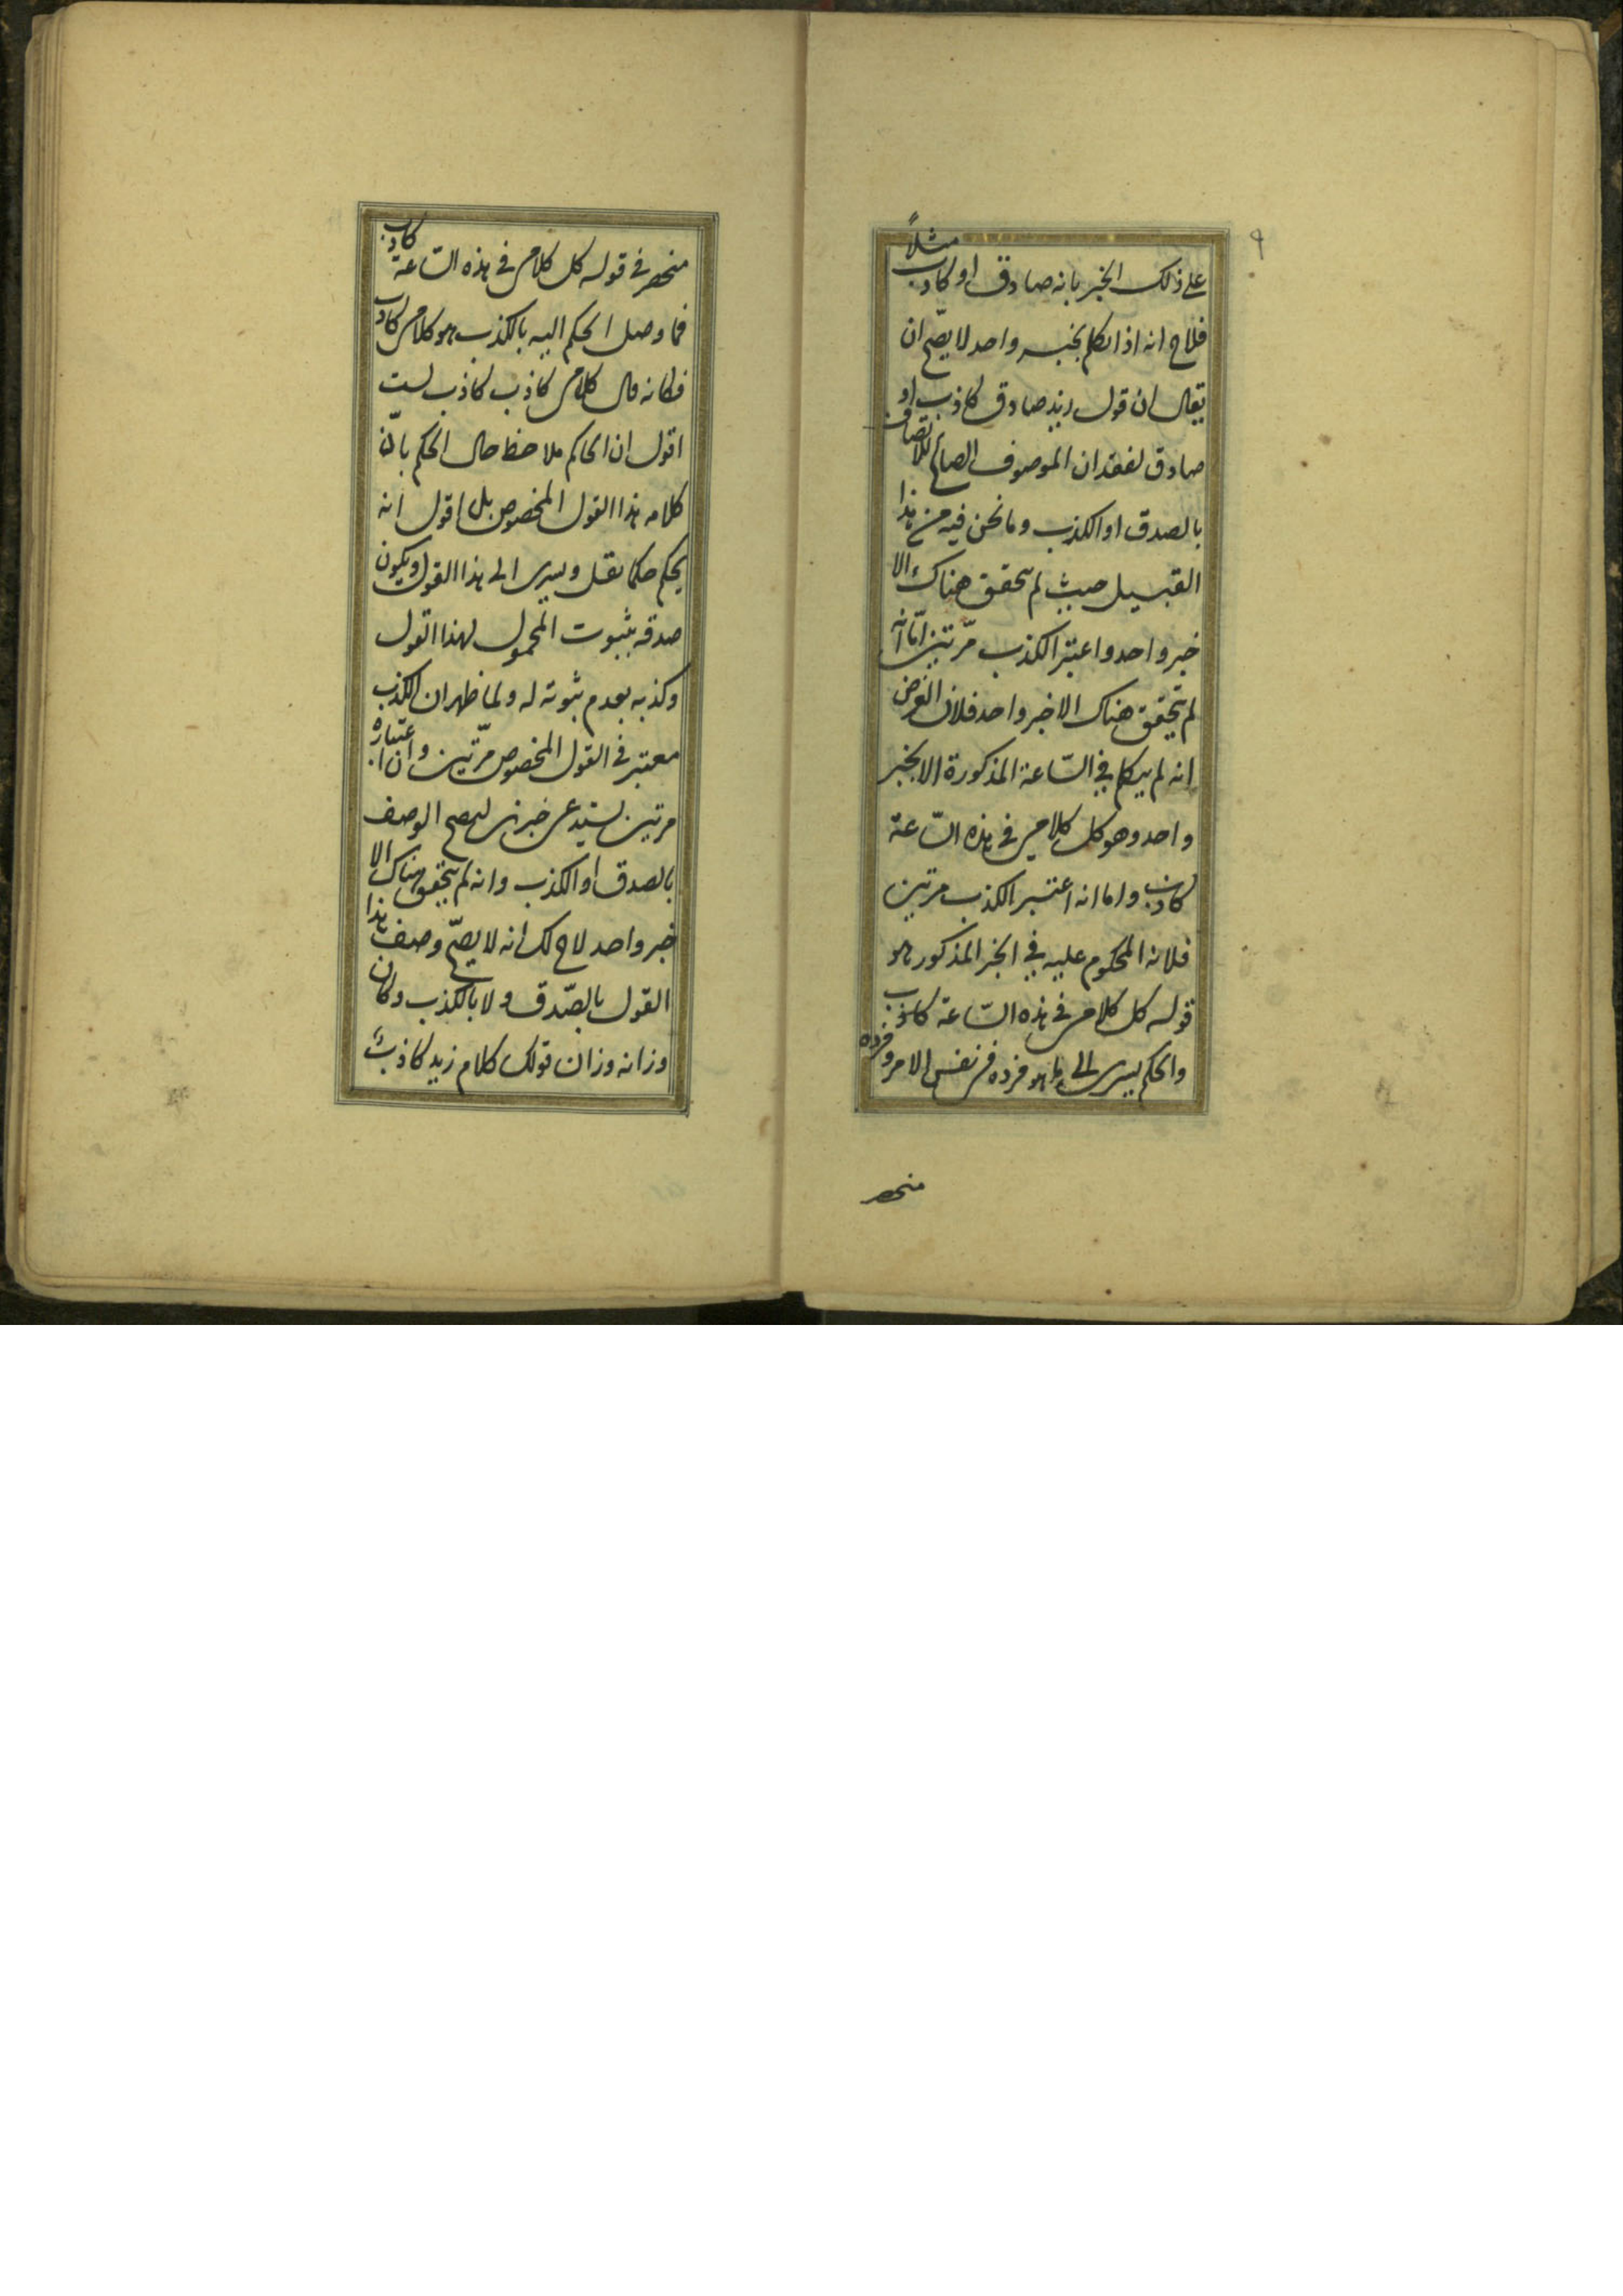 ٩
على ذلك الخبر بانه صادق او كاذب مثلاً
فلاح انه اذا تكلم بخبر واحد لا يصّح ان
يقال ان قول زيد صادق كاذب او
صادق لفقدان الموصوف الصالح للاتصاف
بالصدق او الكذب وما نحن فيه من هذا
القبيل حيث لم يتحقق هناك الا
خبر واحد واعتبر الكذب مرّتين امّا انه
لم يتحقق هناك الا خبر واحد فلان الفرض
انه لم يتكلم في السّاعة المذكورة الا بخبر
واحد وهو كل كلامى فى هذه السّاعة
كاذب واما انه اعتبر الكذب مرتين
فلانه المحكوم عليه في الخبر المذكور هو
قوله كل كلامى فى هذه السّاعة كاذب
والحكم يسرى الى ما هو فرده فى نفس الامر وفرده
منحصر
منحصر فى قوله كل كلامى فى هذه السّاعة كاذب
فما وصل الحكم اليه بالكذب هو كلامى كاذب
فكانه قال كلامى كاذب كاذب لست
اقول ان الحاكم ملاحظ حال الحكم بانّ
كلامه هذا القول المخصوص بل اقول انه
يحكم حكما ينقل ويسرى الى هذا القول ويكون
صدقه بثبوت المحمول لهذا القول
وكذبه بعدم ثبوته له ولما ظهر ان الكذب
معتبر فى القول المخصوص مرّتين وان اعتباره
مرتين يستدعى خبرين ليصح الوصف
بالصدق او الكذب وانه لم يتحقق هناك الا
خبر واحد لاح لك انه لا يصّح وصف هذا
القول بالصّدق ولا بالكذب وكان
وزانه وزان قولك كلام زيد كاذبٌ